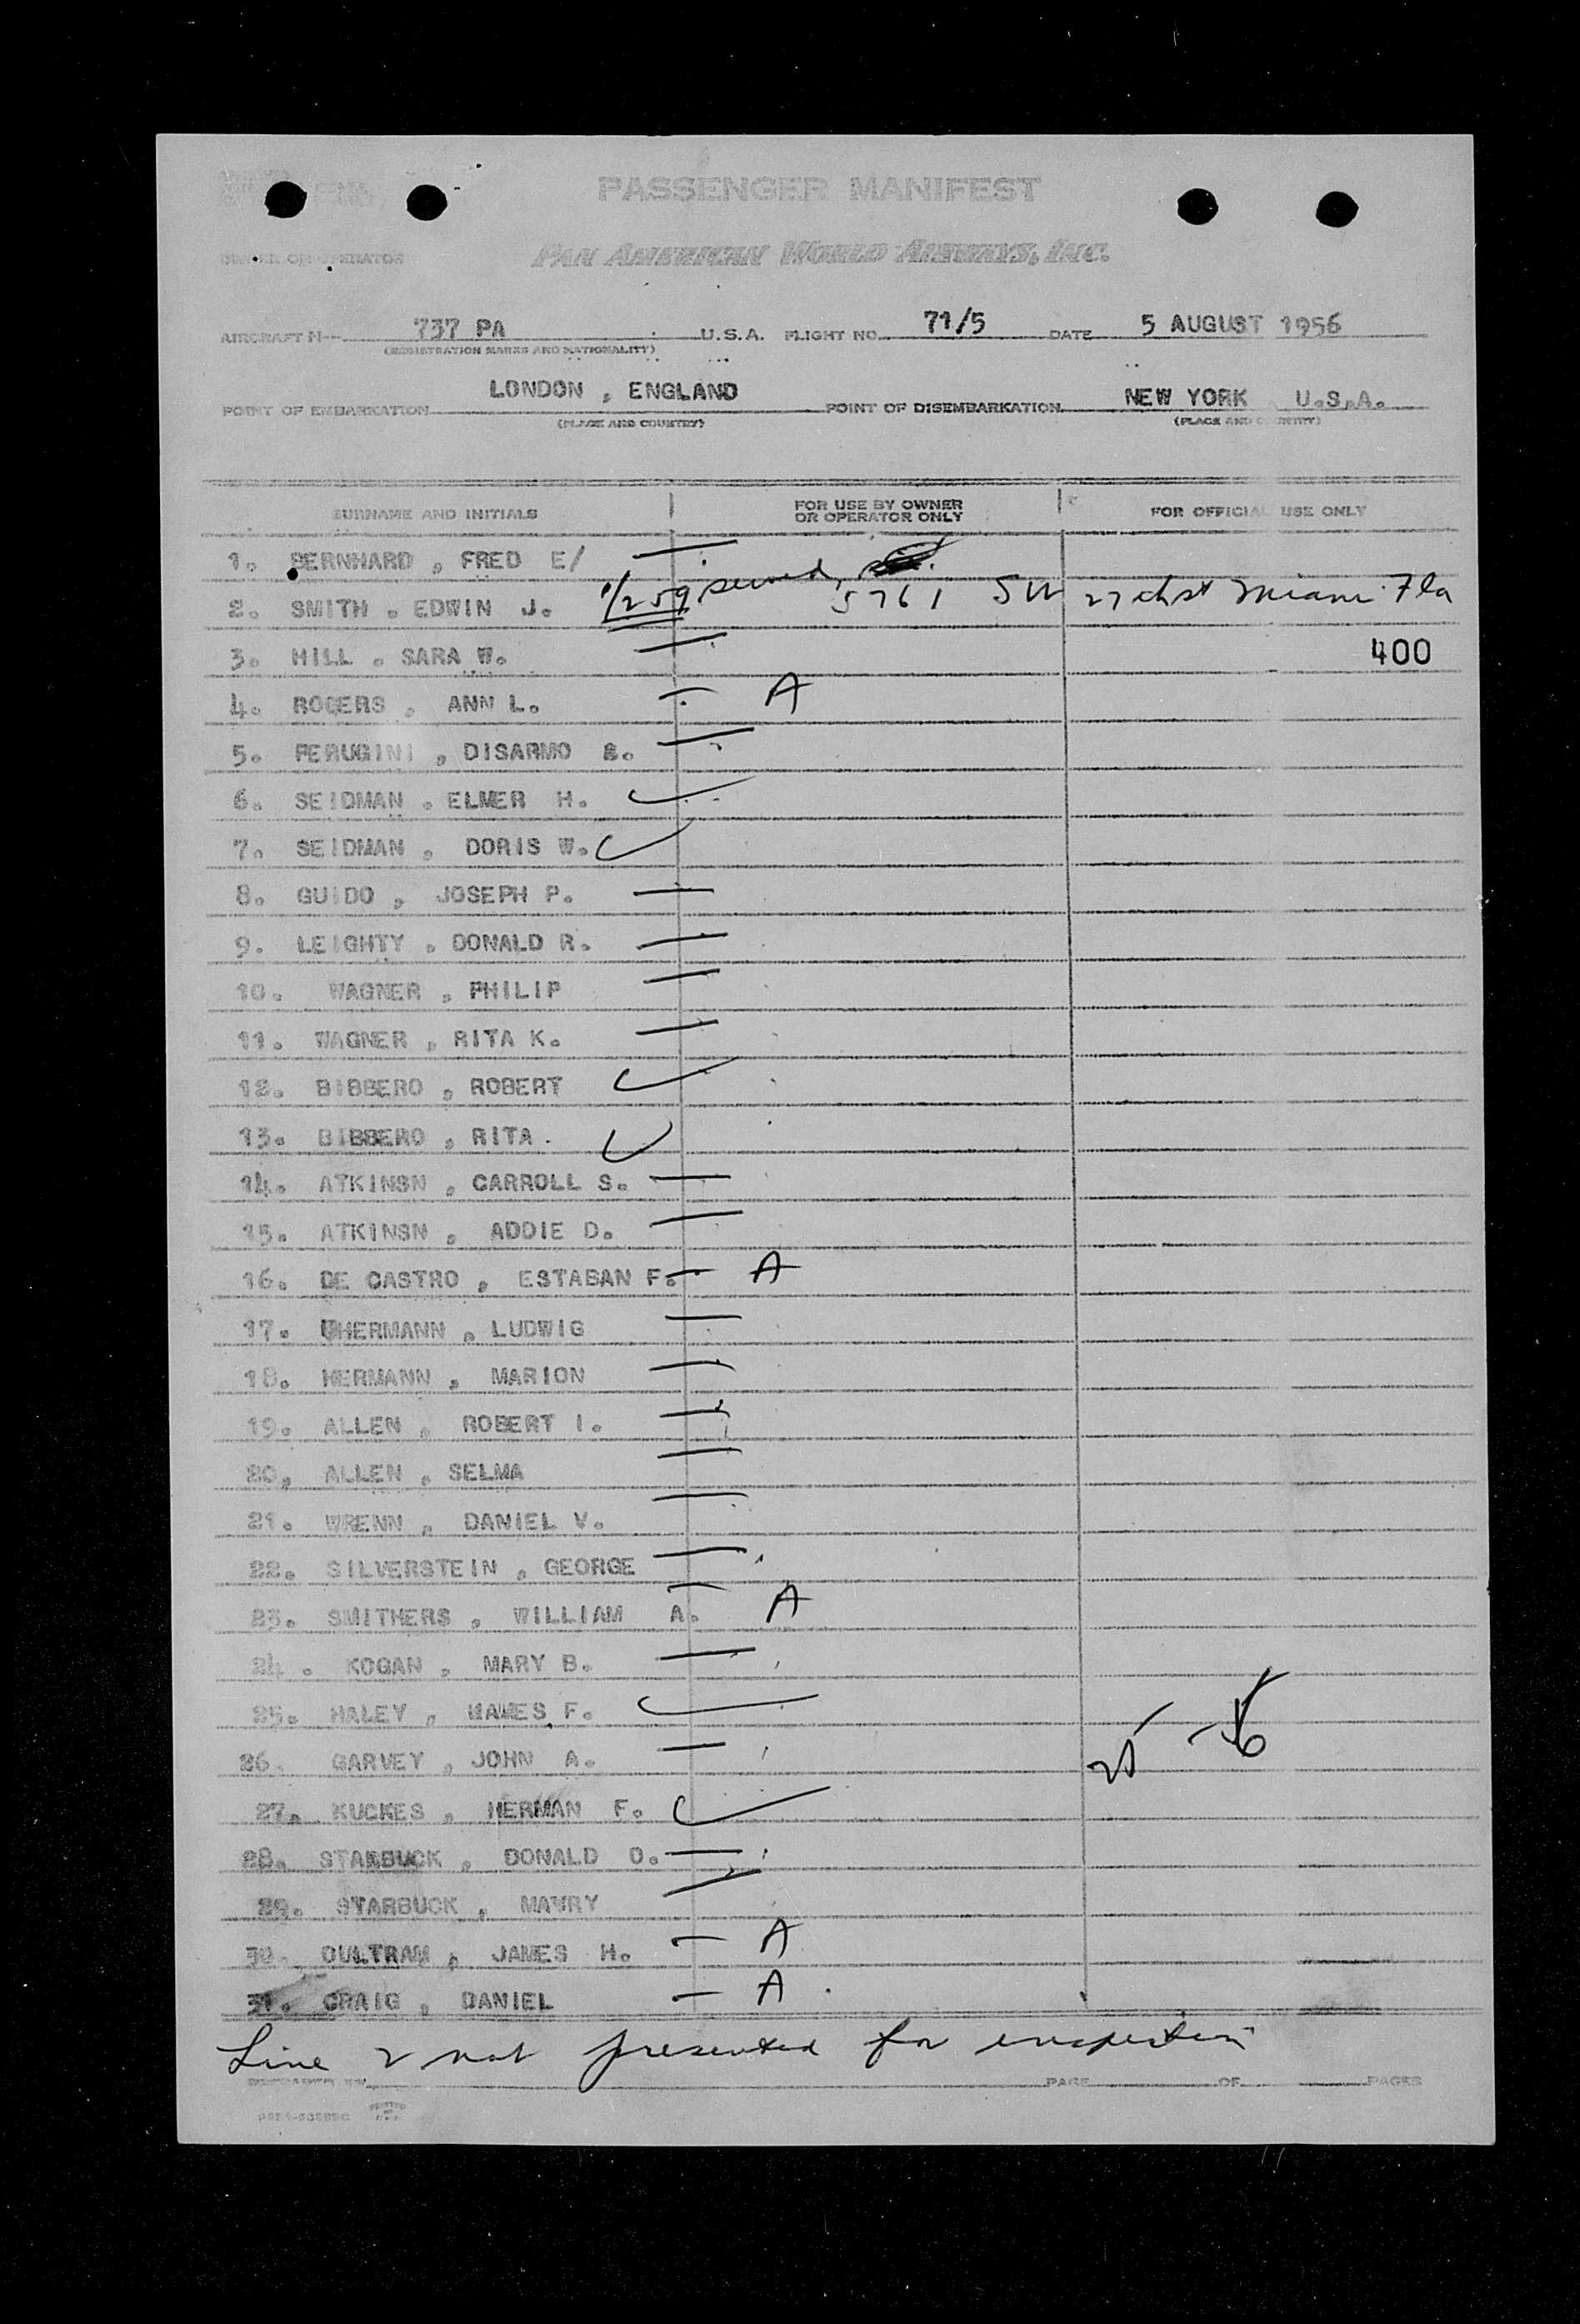 PASSENGER MANIFEST
OWNER OR OPERATOR PAN AMERICAN WORLD AIRWAYS, INC.
AIRCRAFT N 737 PA U.S.A. FLIGHT NO. 71/5 DATE 5 AUGUST 1956
(REGISTRATION MARKS AND NATIONALITY)
POINT OF EMBARKATION LONDON , ENGLAND POINT OF DISEMBARKATION NEW YORK U.S.A.
(PLACE AND COUNTRY) (PLACE AND COUNTRY)
SURNAME AND INITIALS FOR USE BY OWNER OR OPERATOR ONLY FOR OFFICIAL USE ONLY
1. BERNHARD , FRED E/
2. SMITH , EDWIN J. 5761 SW 27 Miami Fla
3. HILL , SARA W. 400
4. ROGERS , ANN L. — A
5. PERUGINI , DISARMO
6. SEIDMAN , ELMER H.
7. SEIDMAN , DORIS W.
8. GUIDO , JOSEPH P.
9. LEIGHTY , DONALD R.
10. WAGNER , PHILIP
11. WAGNER , RITA K.
12. BIBBERO , ROBERT
13. BIBBERO , RITA .
14. ATKINSN , CARROLL S.
15. ATKINSN , ADDIE D.
16. DE CASTRO , ESTABAN F. — A
17. HERMANN , LUDWIG
18. HERMANN , MARION
19. ALLEN , ROBERT I.
20. ALLEN , SELMA
21. WRENN , DANIEL V.
22. SILVERSTEIN , GEORGE
23. SMITHERS , WILLIAM A. — A
24 . KOGAN , MARY B.
25. HALEY , F.
26. GARVEY , JOHN A.
27. KUCKES , HERMAN F.
28. STARBUCK , DONALD O.
29. STARBUCK , MAURY
30. OULTRAM , JAMES H. — A
31. CRAIG , DANIEL — A
Line 2 not presented for inspection
PAGE OF PAGES